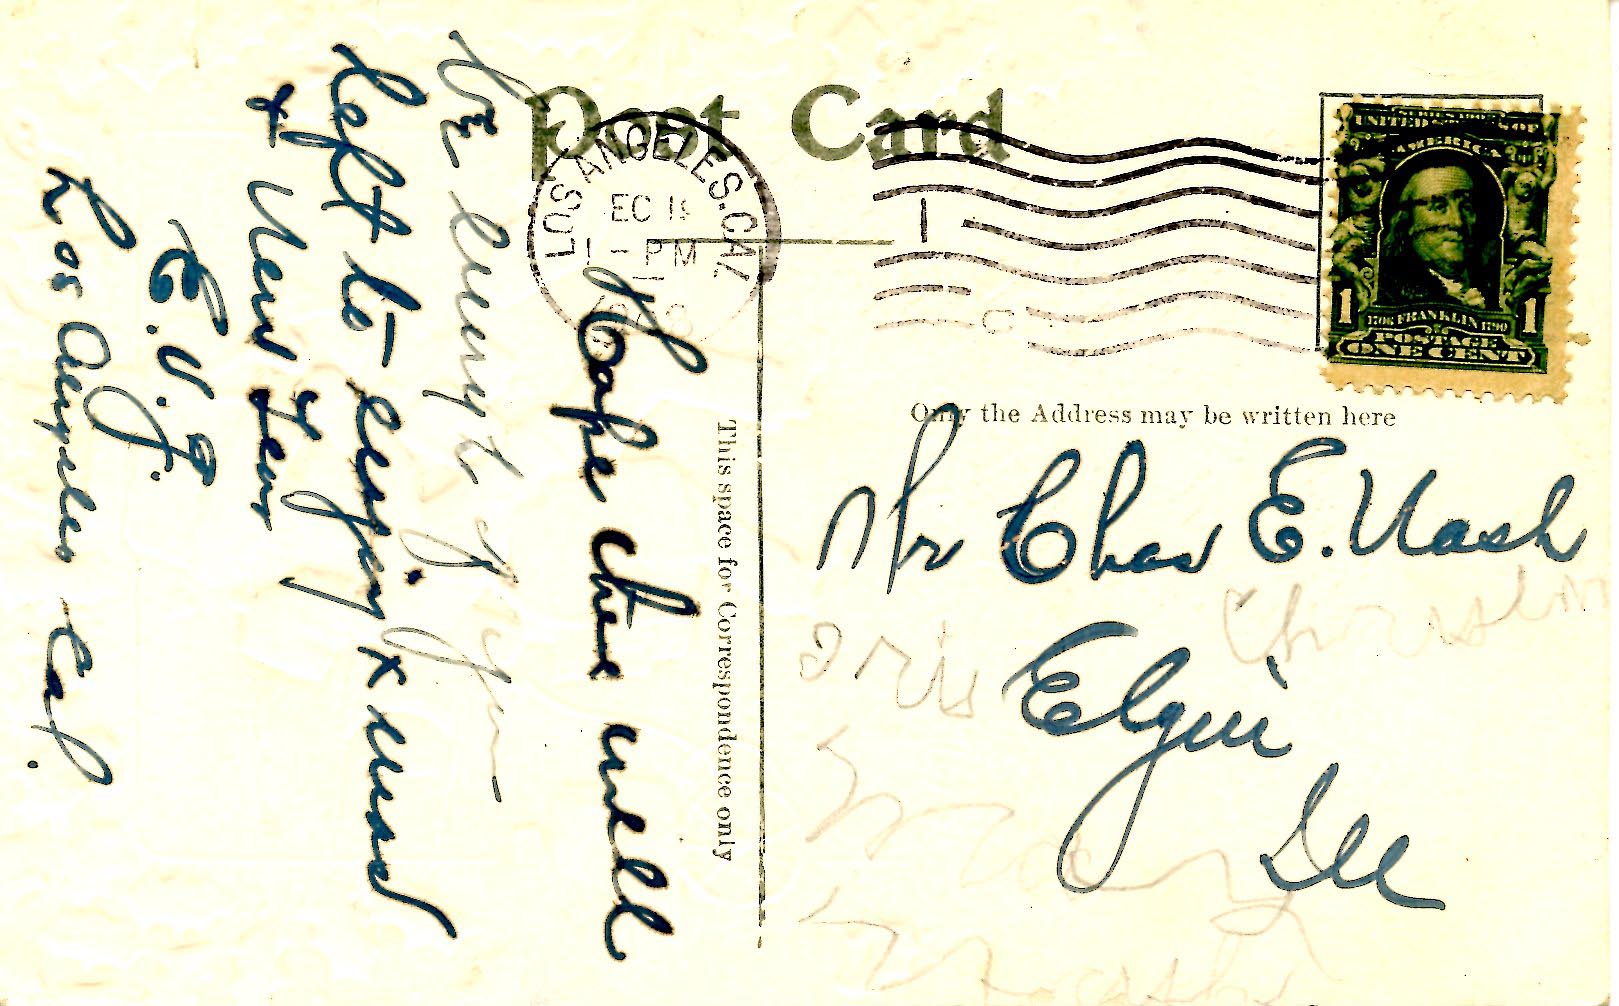 Post Card
LOS ANGELES. CAL.
EC 1
1 - PM
1
C
UNITED STATES OF
AMERICA
1706 FRANKLIN 1790
1 1
POSTAGE
ONE CENT
This space for Correspondence only
Only the Address may be written here
Hope this will
be
left to enjoy Xmas
& New Year
E. V. J.
Los Angeles Cal.
Mr Chas E. Nash
Elgin
Ill